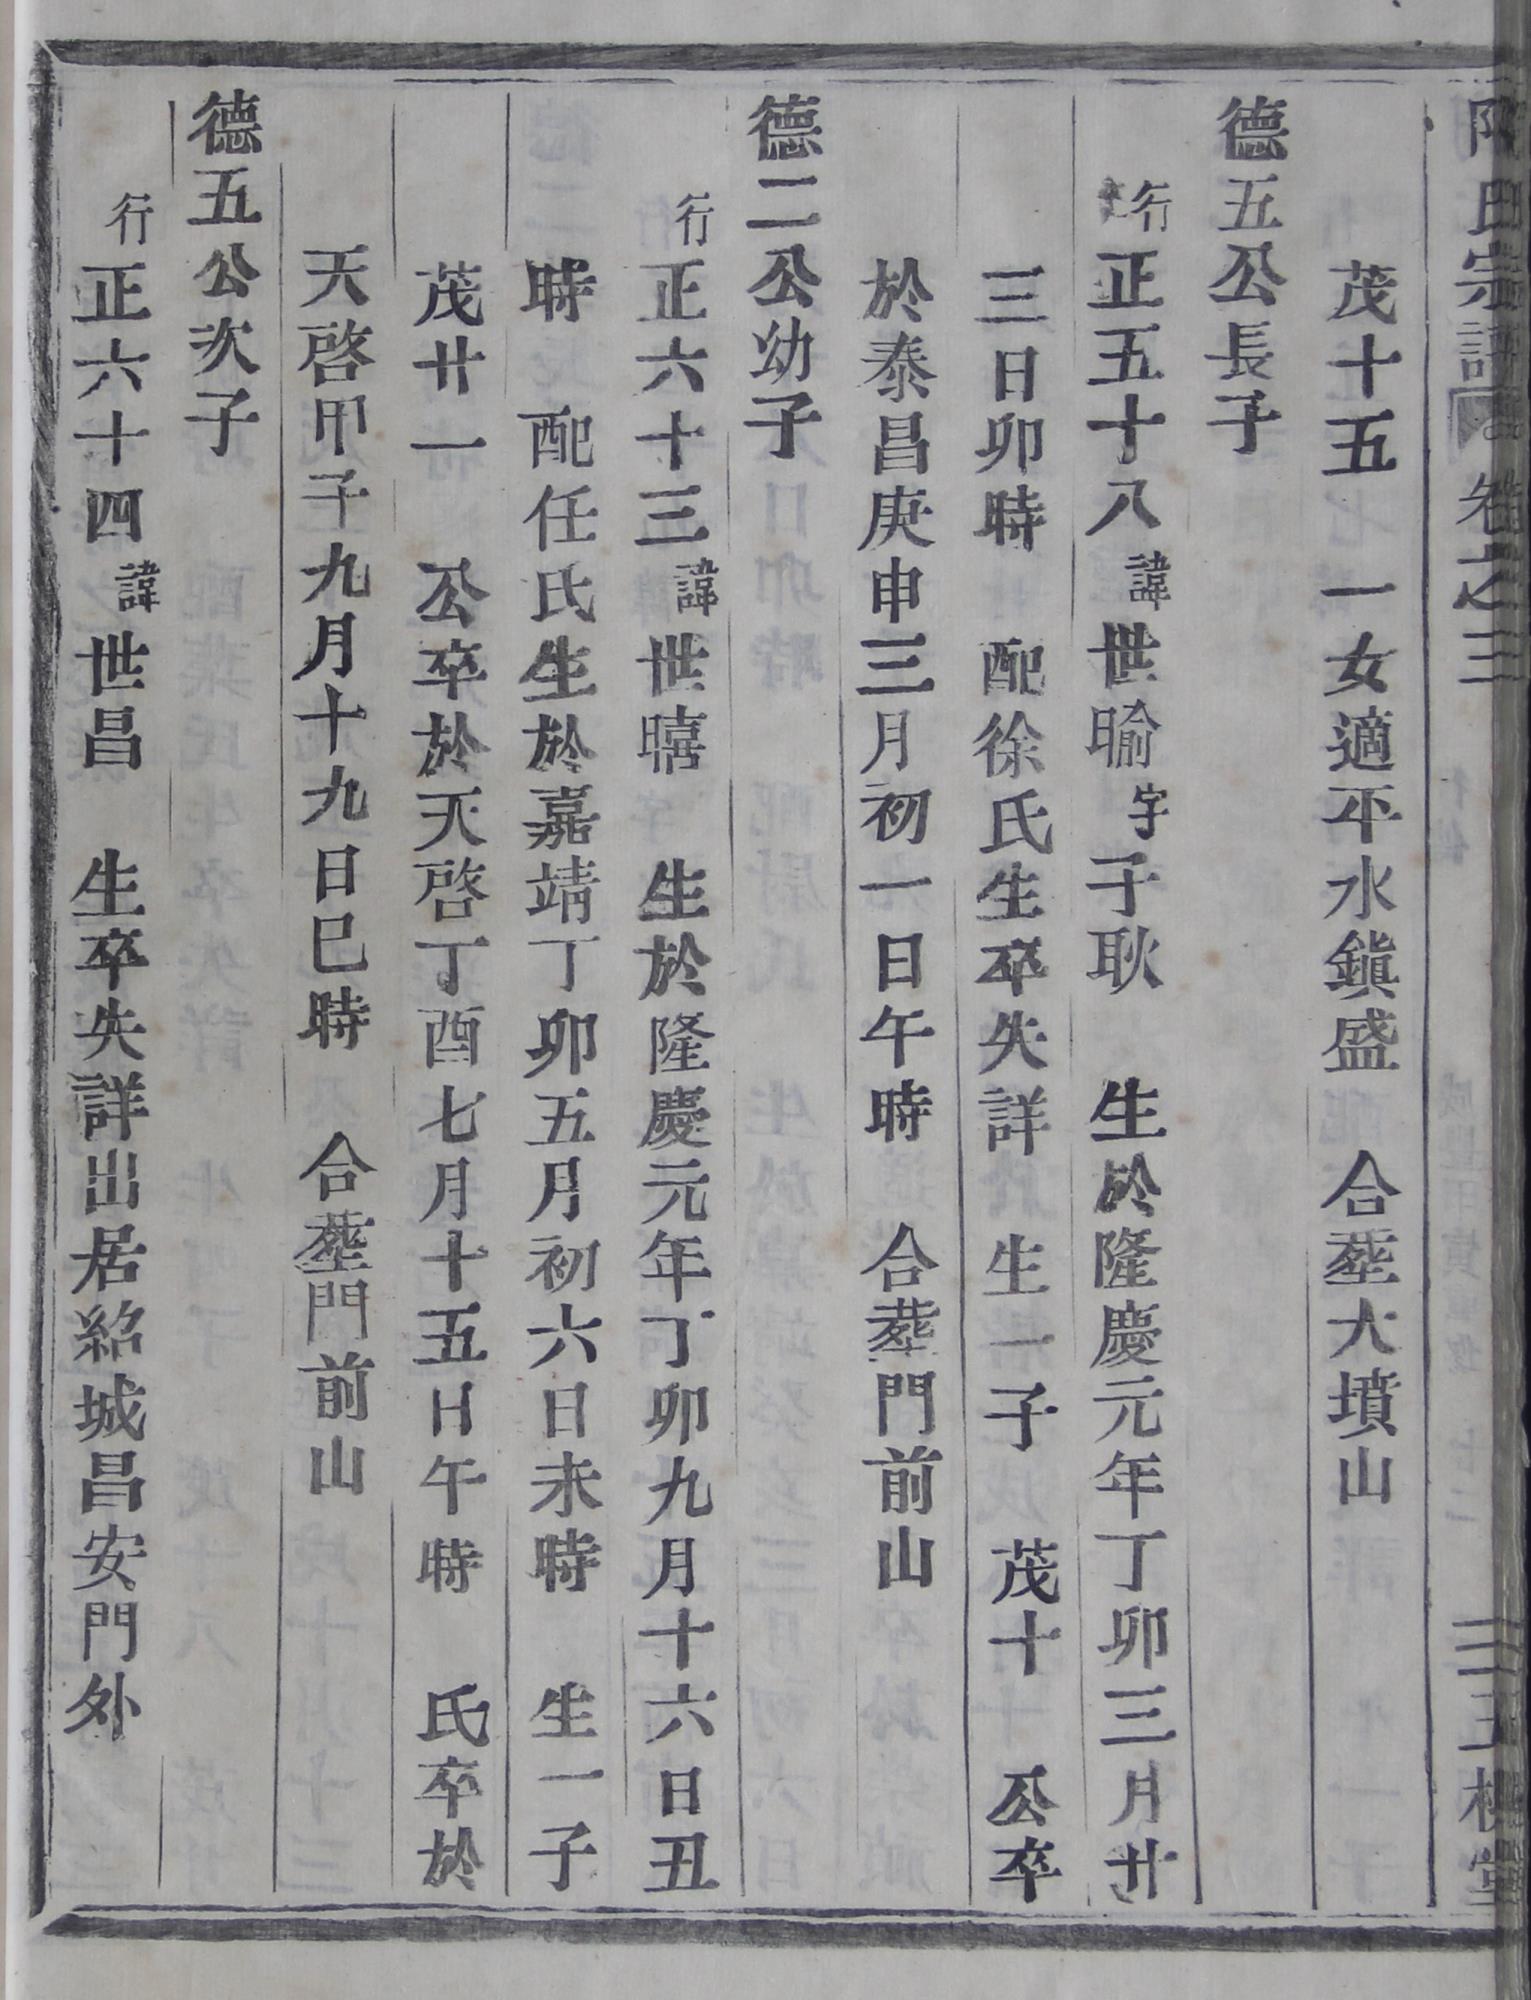 氏宗譜 卷之三 三 堂
茂十五 一女適平水鎮盛 合塟大墳山
德五公長子
行正五十八諱世暚字子耿 生於隆慶元年丁卯三月廿
三日卯時 配徐氏生卒失詳 生一子 茂十 公卒
於泰昌庚申三月初一日午時 合葬門前山
德二公幼子
行正六十三諱世暿 生於隆慶元年丁卯九月十六日丑
時 配任氏生於嘉靖丁卯五月初六日未時 生一子
茂廿一 公卒於天啓丁酉七月十五日午時 氏卒於
天啓甲子九月十九日巳時 合塟門前山
德五公次子
行正六十四諱世昌 生卒失詳出居紹城昌安門外